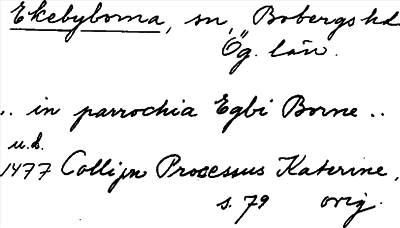 Ekebyborna, sn, Bobergs hd
Ög. län.
.. in parrochia Egbi Borne ..
u.d.
1477 Collijn Processus Katerine,
s. 79 orig.